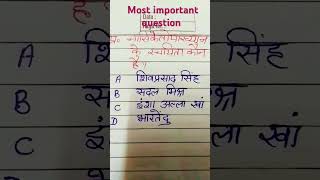 Most important
question
Date :
प्र० नासिकेतोपाख्यान
के रचयिता कौन
है?
A शिवप्रसाद सिंह
B सदल मिश्र
C इंशा अल्ला खां
D भारतेंदु
A
सिंह
B
C
खां